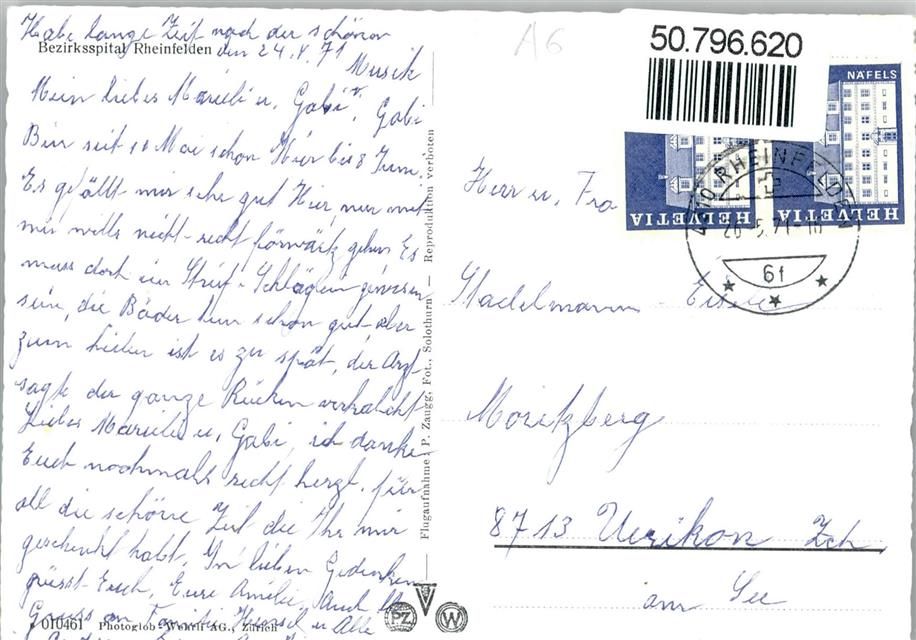 Habe lange Zeit nach der schönen
Bezirksspital Rheinfelden
den 24.V.71
Musik
Mein liebes Marieli u. Gabi, Gabi
Bin seit 10 Mai schon Hier bis 8 Juni,
Es gefällt mir sehr gut Hier, nur mit
mir wills nicht recht förwärtz gehen Es
muss doch ein Streif-Schlägli gewesen
sein, die Bäder tun schon gut aber
zum heilen ist es zu spät, der Arzt
sagte der ganze Rücken verkalcht
Liebes Marieli u. Gabi, ich danke
Euch nochmals recht herzl. für
all die schöne Zeit die Ihr mir
geschenkt habt. In lieben Gedenken
grüsst Euch, Eure Amelie, Auch
Gruss an Familie u Alle
010461 Photoglob-Wehrli AG., Zürich
Flugaufnahme: P. Zaugg, Fot., Solothurn — Reproduktion verboten
PZ
W
A6
50.796.620
NÄFELS
HELVETIA
HELVETIA
4310 RHEINFELDEN
26.-5.71-
6f
Herr u. Fra
Stadelmann-
Moritzberg
8713 Uerikon Zch
am See